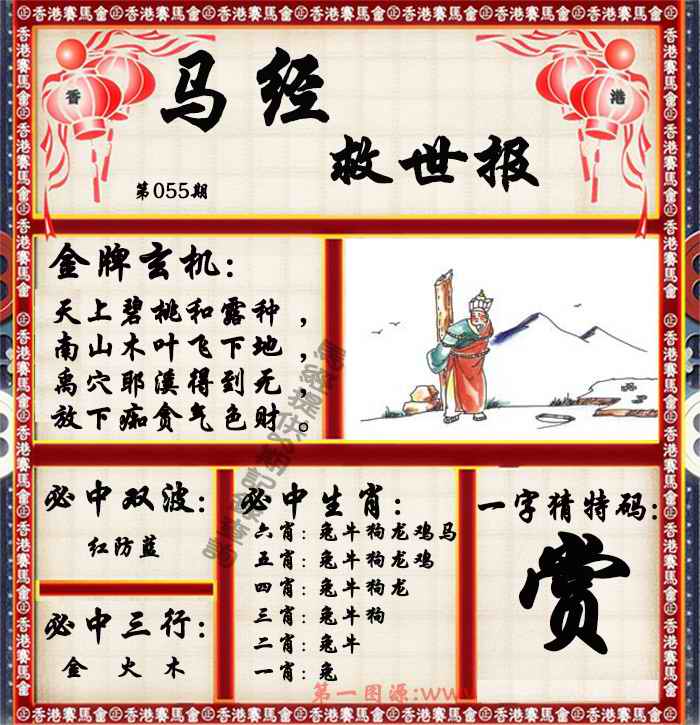 香港賽馬會
香
港
马经
救世报
第055期
金牌玄机：
天上碧桃和露种，
南山木叶飞下地，
禹穴耶溪得到无，
放下痴贪气色财。
必中双波：
红防蓝
必中三行：
金 火 木
必中生肖：
六肖：兔牛狗龙鸡马
五肖：兔牛狗龙鸡
四肖：兔牛狗龙
三肖：兔牛狗
二肖：兔牛
一肖：兔
一字猜特码：
赏
第一图源:www